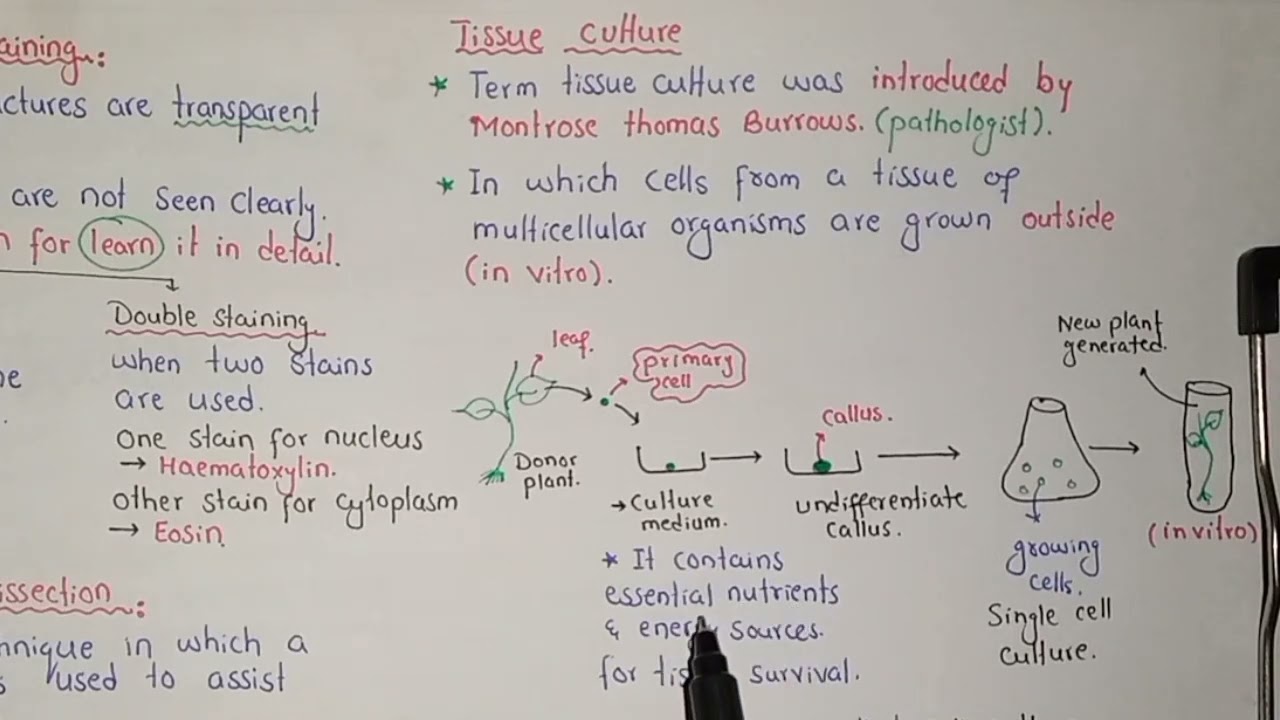 aining:
ctures are transparent
are not seen clearly.
for learn it in detail.
Double staining
when two stains
are used.
one stain for nucleus
→ Haematoxylin.
other stain for cytoplasm
→ Eosin.
issection:
hnique in which a
s used to assist
Tissue culture
* Term tissue culture was introduced by
Montrose thomas Burrows. (pathologist).
* In which cells from a tissue of
multicellular organisms are grown outside
(in vitro).
leaf.
primary
cell
Donor
plant.
→ Culture
medium.
* It contains
essential nutrients
& energy sources.
for survival.
callus.
undifferentiate
callus.
growing
cells.
Single cell
culture.
New plant
generated.
(in vitro)